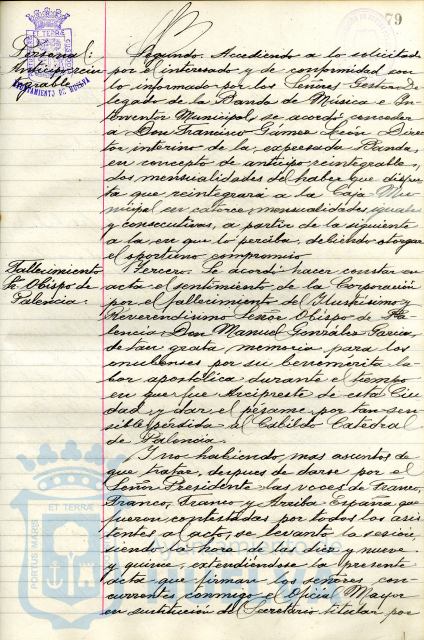 79
Personal:
Anticipo rein-
grable
AYUNTAMIENTO DE HUELVA
Segundo. Accediendo a lo solicitado
por el interesado y de conformidad con
lo informado por los Señores Gestor De-
legado de la Banda de Música e In-
terventor Municipal, se acordó conceder
a Don Francisco Gámez León, Direc-
tor interino de la expresada Banda,
en concepto de anticipo reintegrable,
dos mensualidades del haber que disfru-
ta que reintegrará a la Caja Mu-
nicipal en catorce mensualidades iguales
y consecutivas, a partir de la siguiente
a la en que lo perciba, debiendo otorgar
el oportuno compromiso
Fallecimiento
Sr. Obispo de
Palencia.
Tercero. Se acordó hacer constar en
acta el sentimiento de la Corporación
por el fallecimiento del Ilustrísimo y
Reverendísimo Señor Obispo de Pa-
lencia, Don Manuel González García,
de tan grata memoria para los
onubenses por su benemérita la-
bor apostólica durante el tiempo
en que fue Arcipreste de esta Ciu-
dad y dar el pésame por tan sen-
sible pérdida al Cabildo Catedral
de Palencia.
Y no habiendo mas asuntos de
que tratar, despues de darse por el
Señor Presidente las voces de Franco,
Franco, Franco y Arriba España que
fueron contestadas por todos los asis-
tentes al acto, se levantó la sesión,
siendo la hora de las diez y nueve
y quince, extendiéndose la presente
acta que firman los señores con-
currentes conmigo el Oficial Mayor
en sustitución de Secretario titular por
PORTUS MARIS ET TERRÆ
Ayuntamiento de